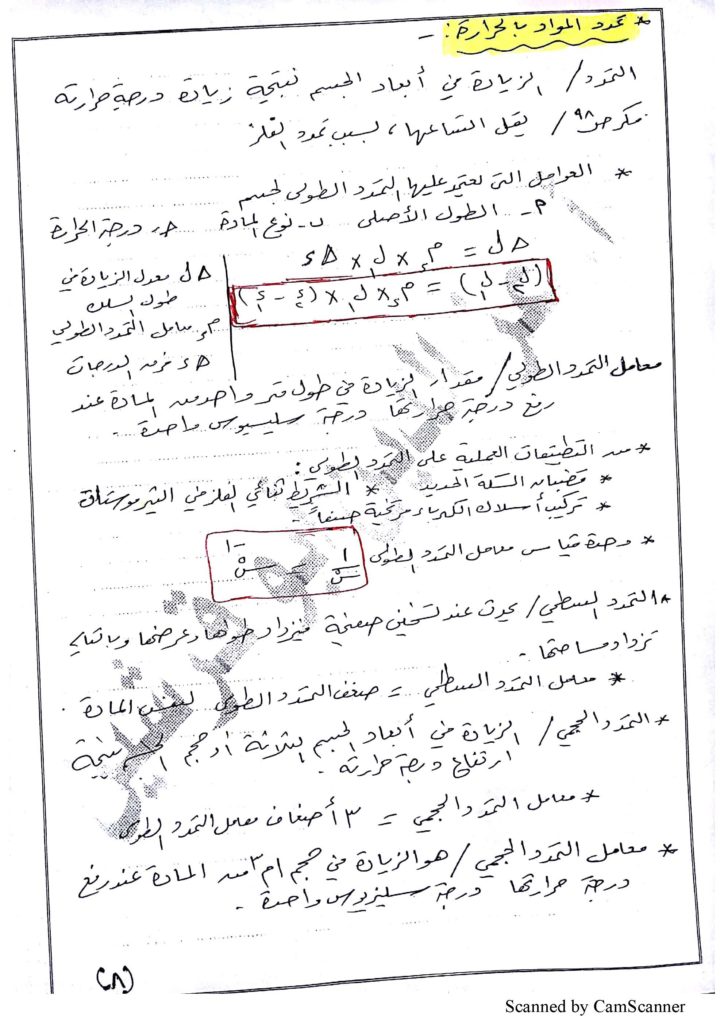 * تمدد المواد بالحرارة :-
التمدد / الزيادة في أبعاد الجسم نتيجة زيادة درجة حرارته
فكر ص٩٨ / يقل اتساعها ، بسبب تمدد الفلز
* العوامل التى يعتمد عليها التمدد الطولى لجسم
٢- الطول الأصلى ب- نوع المادة ج- درجة الحرارة
Δل = م × ل١ × Δ
(ل٢ - ل١) = م × ل١ × (٢ - ١)
Δل معدل الزيادة في
طول السلك
معامل التمدد الطولي
Δ فرق الدرجات
معامل التمدد الطولي / مقدار الزيادة في طول متر واحد من المادة عند
رفع درجة حرارتها درجة سليسيوس واحدة .
* من التطبيقات العملية على التمدد الطولى :
* قضبان السكة الحديد * الشريط ثنائي الفلز في الثيرموستات
* تركيب أسلاك الكهرباء مرتخية صيفاً -
* وحدة قياس معامل التمدد الطولى ١/سْ = سْ-١
التمدد السطحي / يحدث عند تسخين صفيحة فيزداد طولها وعرضها وبالتالي
تزداد مساحتها -
* معامل التمدد السطحي = ضعف التمدد الطولى لنفس المادة .
* التمدد الحجمي / الزيادة في أبعاد الجسم الثلاثة أو حجم الجسم نتيجة
ارتفاع درجة حرارته .
* معامل التمدد الحجمي = ٣ أضعاف معامل التمدد الطولى
* معامل التمدد الحجمي / هو الزيادة في حجم ١م٣ من المادة عند رفع
درجة حرارتها درجة سليزيوس واحدة -
(٨)
Scanned by CamScanner